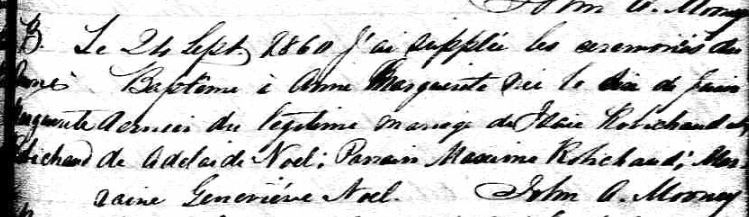 John A. Mooney
B. Le 24 Sept. 1860 J'ai supplée les ceremonies du
Anne Baptême à Anne Marguerite née le dix de Juin
Marguerite dernier du légitime mariage de Isaie Robichaud et
Robichaud de Adelaide Noel; Parrain Maxime Robichaud; Mar-
raine Geneviève Noel. John A. Mooney